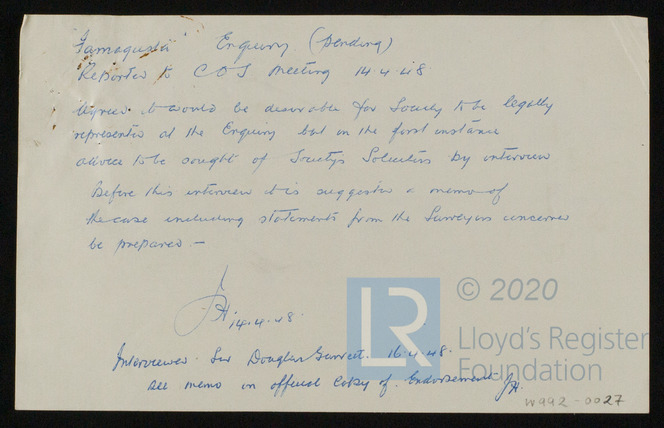 "Famagusta" Enquiry (pending)
Reported to COS meeting 14.4.48.
Agreed it would be desirable for Society to be legally
represented at the Enquiry but in the first instance
advice to be sought of Society's Solicitors by interview
Before this interview it is suggested a memo of
the case including statements from the Surveyors concerned
be prepared. —
JH. 14.4.48.
Interviewed Sir Douglas Garrett. 16.4.48.
see memo on official copy of Endorsement JH.
W992-0027
LR
© 2020
Lloyd's Register
Foundation